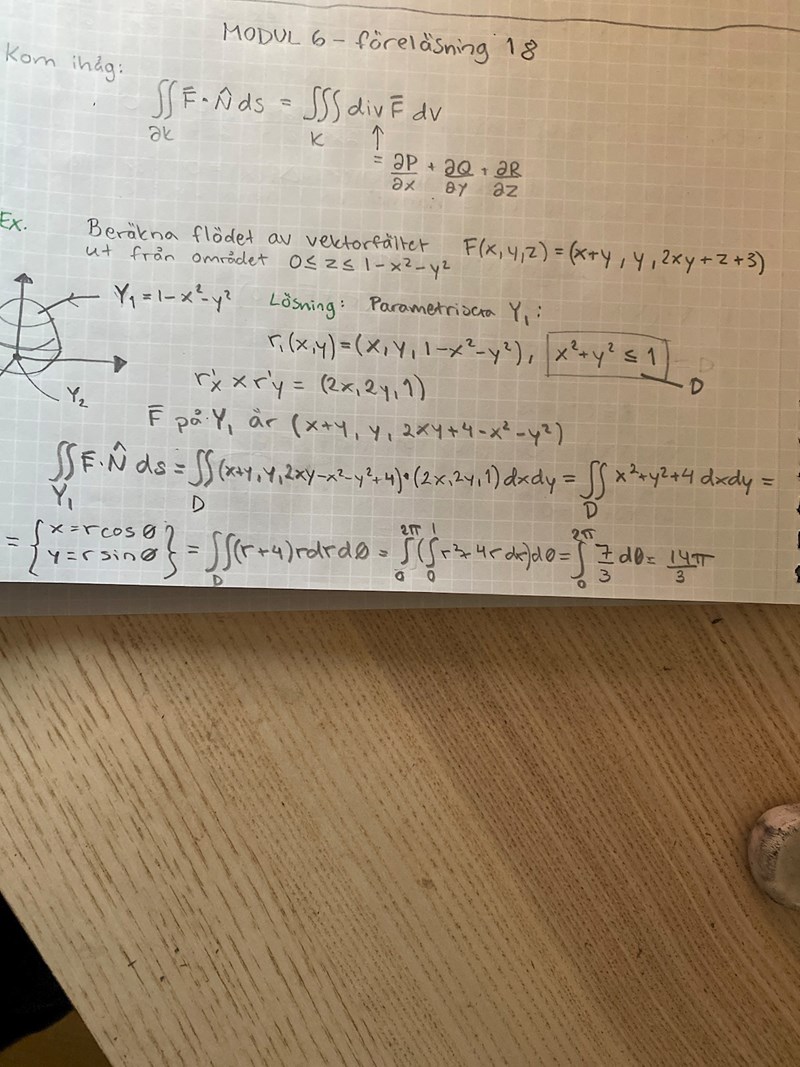 MODUL 6 - föreläsning 18
Kom ihåg:
∬_∂K F̄·N̂ ds = ∭_K div F̄ dv
↑
= ∂P/∂x + ∂Q/∂y + ∂R/∂z
Ex. Beräkna flödet av vektorfältet F(x,y,z) = (x+y, y, 2xy+z+3)
ut från området 0≤z≤1-x²-y²
Y₁ = 1-x²-y² Lösning: Parametrisera Y₁:
r₁(x,y) = (x, y, 1-x²-y²), x²+y² ≤ 1
D
Y₂ r'x × r'y = (2x, 2y, 1)
F̄ på Y₁ är (x+y, y, 2xy+4-x²-y²)
∬_Y₁ F̄·N̂ ds = ∬_D (x+y, y, 2xy-x²-y²+4)•(2x, 2y, 1) dxdy = ∬_D x²+y²+4 dxdy =
= {x=rcosθ y=rsinθ} = ∬_D (r+4)rdrdθ = ∫_0^2π (∫_0^1 r²+4r dr)dθ = ∫_0^2π 7/3 dθ = 14π/3